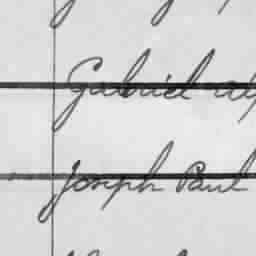 Gabriel
Joseph Paul